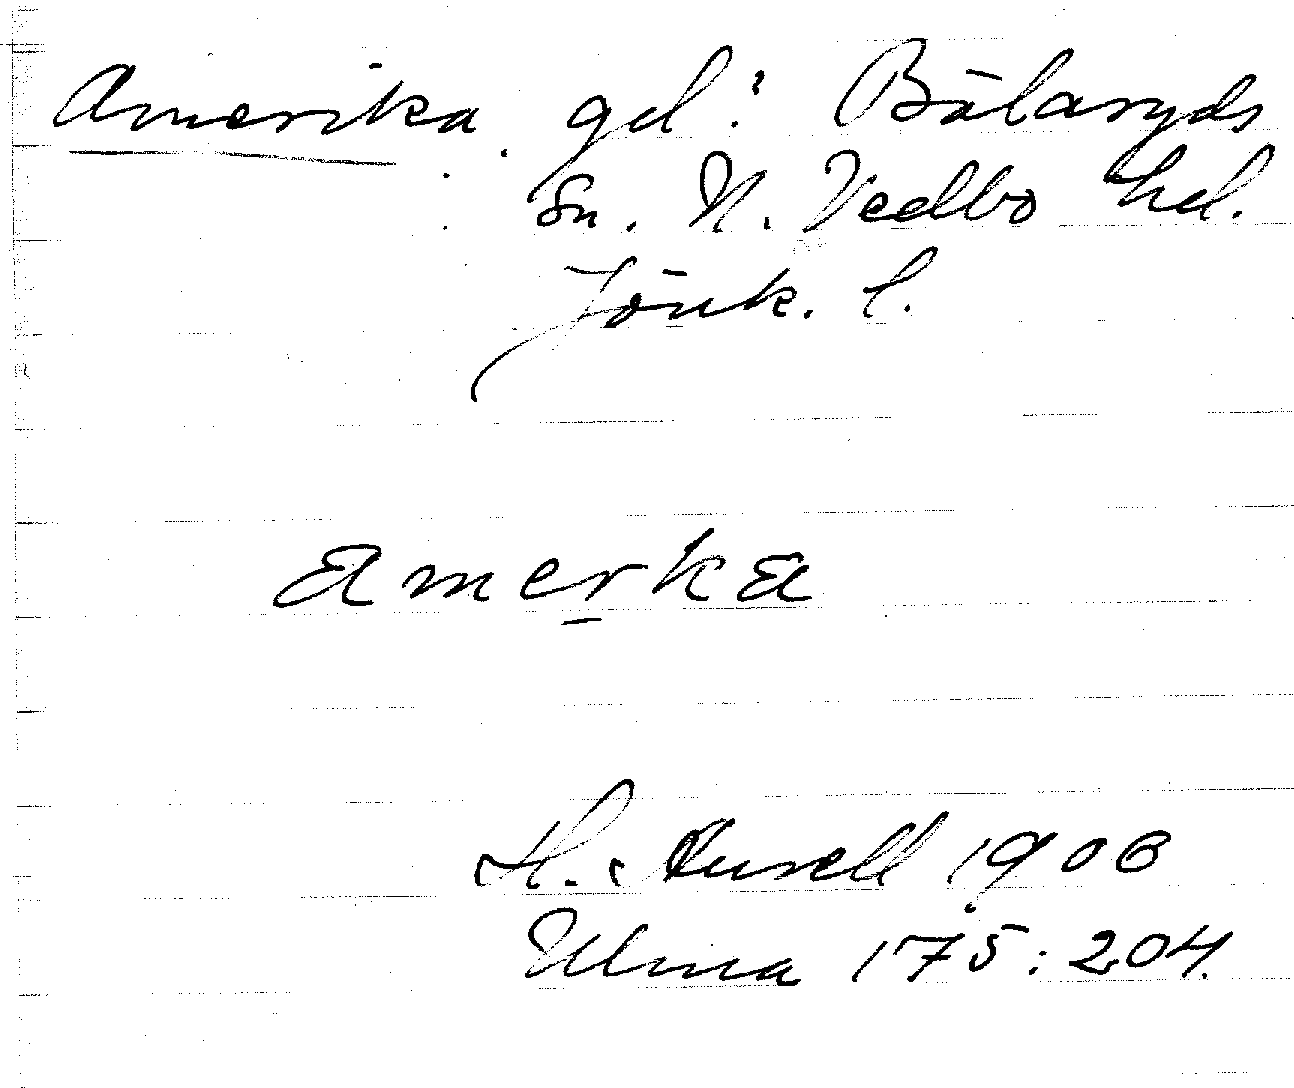 Amerika gd i Bälaryds
sn. N. Vedbo hd.
Jönk. l.
amerka
H. Aurell 1908
Ulma 175:204.